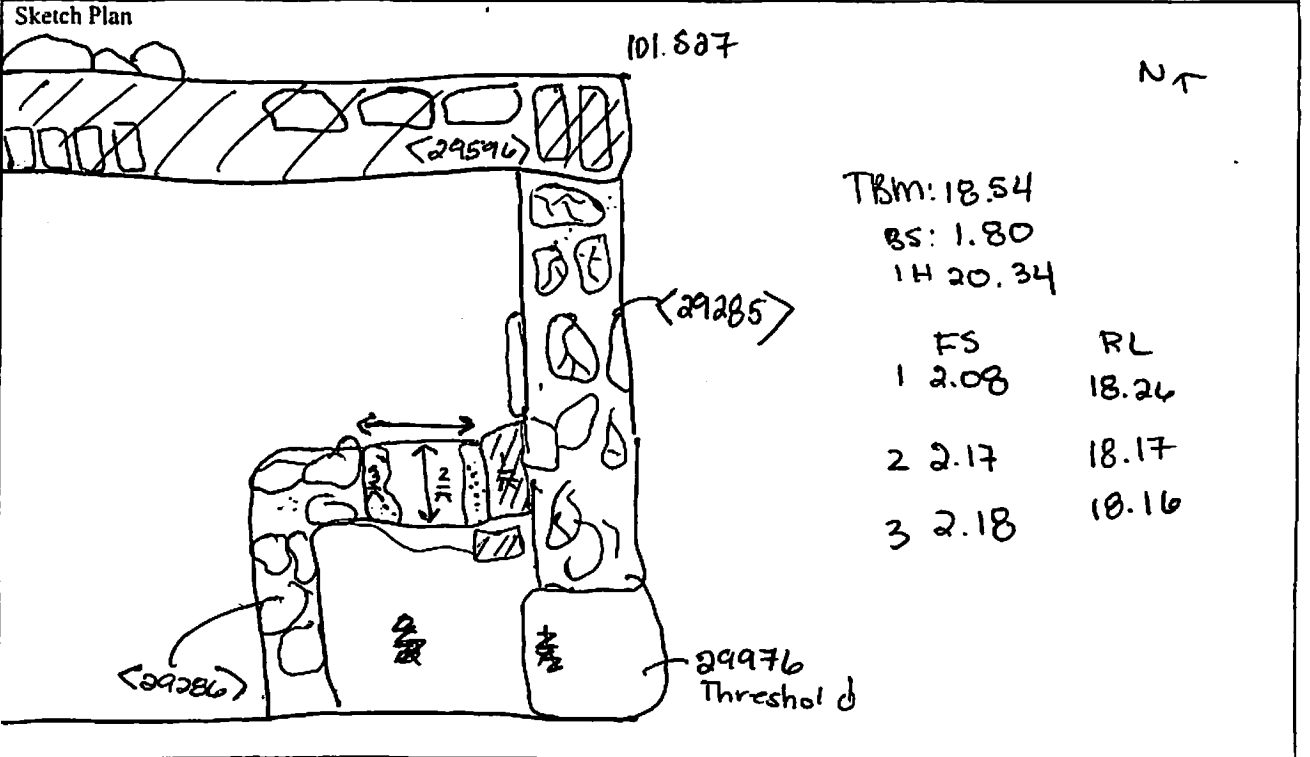 Sketch Plan
101.827
N ↑
<29596>
TBM: 18.54
BS: 1.80
IH 20.34
<29285>
FS RL
1 2.08 18.26
2 2.17 18.17
3 2.18 18.16
3 2 1
<29286>
29976
Threshold